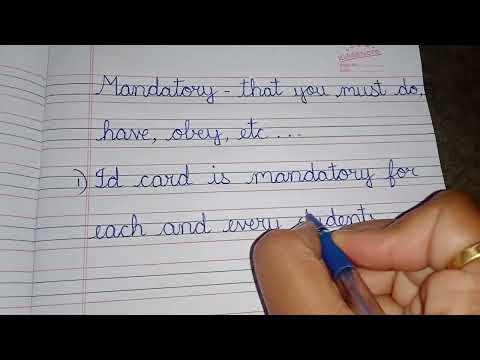 Mandatory - that you must do,
have, obey, etc ...
1) Id card is mandatory for
each and every student